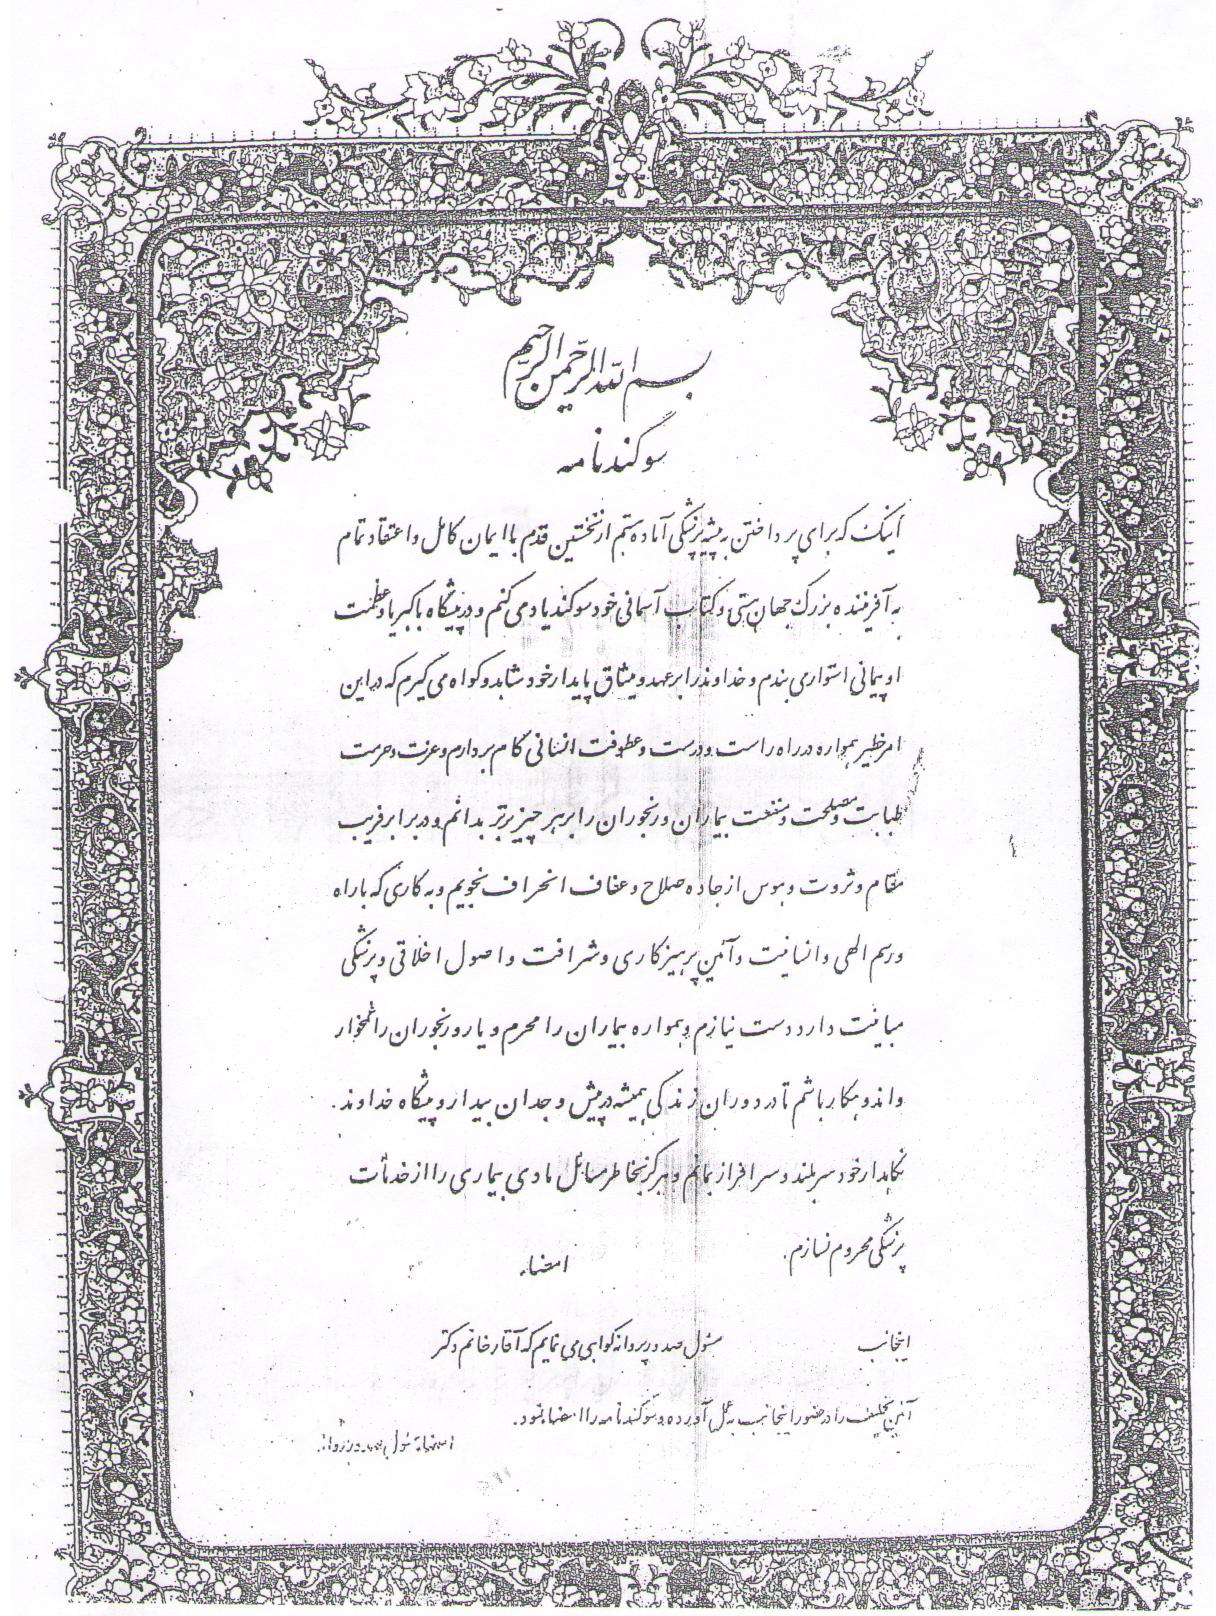 بسم الله الرحمن الرحیم
سوگندنامه
اینک که برای پرداختن به پیشه پزشکی آماده هستم از نخستین قدم با ایمان کامل و اعتقاد تمام
به آفریننده بزرگ جهان هستی و کتاب آسمانی خود سوگند یاد می کنم و در پیشگاه با کبریا و عظمت
او پیمانی استوار می بندم و خداوند را بر عهد و میثاق پایدار خود شاهد و گواه می گیرم که در این
امر خطیر همواره در راه راست و درست و عطوفت انسانی گام بردارم و عزت و حرمت
طبابت و مصلحت و منفعت بیماران و رنجوران را بر هر چیز برتر بدانم و در برابر فریب
مقام و ثروت و هوس از جاده صلاح و عفاف انحراف نجویم و به کاری که با راه
و رسم الهی و انسانیت و آئین پرهیزکاری و شرافت و اصول اخلاقی و پزشکی
مباینت دارد دست نیازم و همواره بیماران را محرم و یار و رنجوران را غمخوار
و اندوهگسار باشم تا در دوران زندگی همیشه در پیش وجدان بیدار و پیشگاه خداوند.
نگاهدار خود سربلند و سرافراز بمانم و هرگز بخاطر مسائل مادی بیماری را از خدمات
پزشکی محروم نسازم.
امضاء
اینجانب مسئول صدور پروانه گواهی می نمایم که آقا/خانم دکتر
آئین تحلیف را در حضور اینجانب به عمل آورده و سوگندنامه را امضاء نمود.
امضاء مسئول صدور پروانه